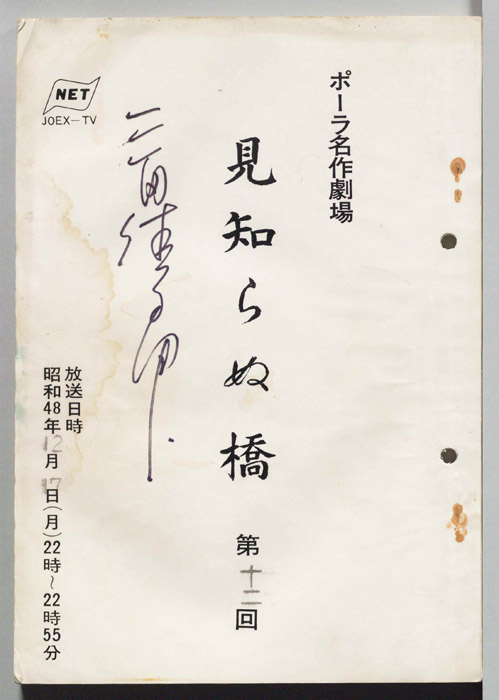 NET
JOEX-TV
ポーラ名作劇場
見知らぬ橋 第十二回
三田佳子用
放送日時
昭和48年12月17日(月)22時~22時55分